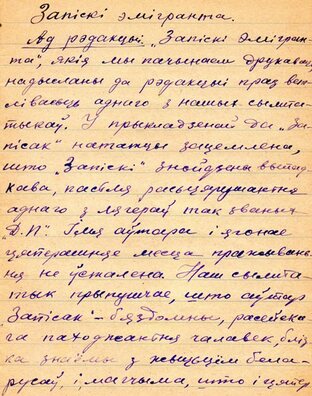 Запіскі эмігранта.
Ад рэдакцыі. „Запіскі эмігран-
та", якія мы пачынаем друкаваць,
надысланы да рэдакцыі праз вет-
лівасьць аднаго з нашых сымпа-
тыкаў. У прыкладзенай да „За-
пісак" нататцы зацемлена,
што „Запіскі" знойдзены выпад-
кава, пасьля расьцярушаньня
аднаго з лягераў так званых
„Д.П." Імя аўтара і ягонае
цяперашняе месца пражываньня
ня ўсталена. Наш сымпа-
тык прыпушчае, што аўтар
„Запісак" – бяздомны, расейска-
га паходжаньня чалавек, бліз-
ка знаёмы з жыцьцём бела-
русаў, і, магчыма, што і цяпер